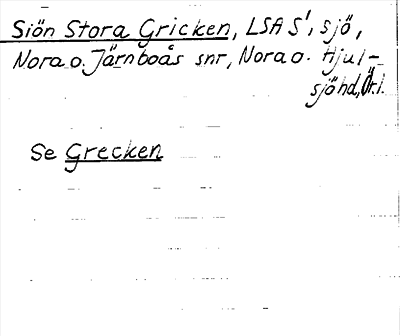 Siön Stora Gricken, LSA S', sjö,
Nora o. Järnboås snr, Nora o. Hjul-
sjöhd, Ör. l.
Se Grecken